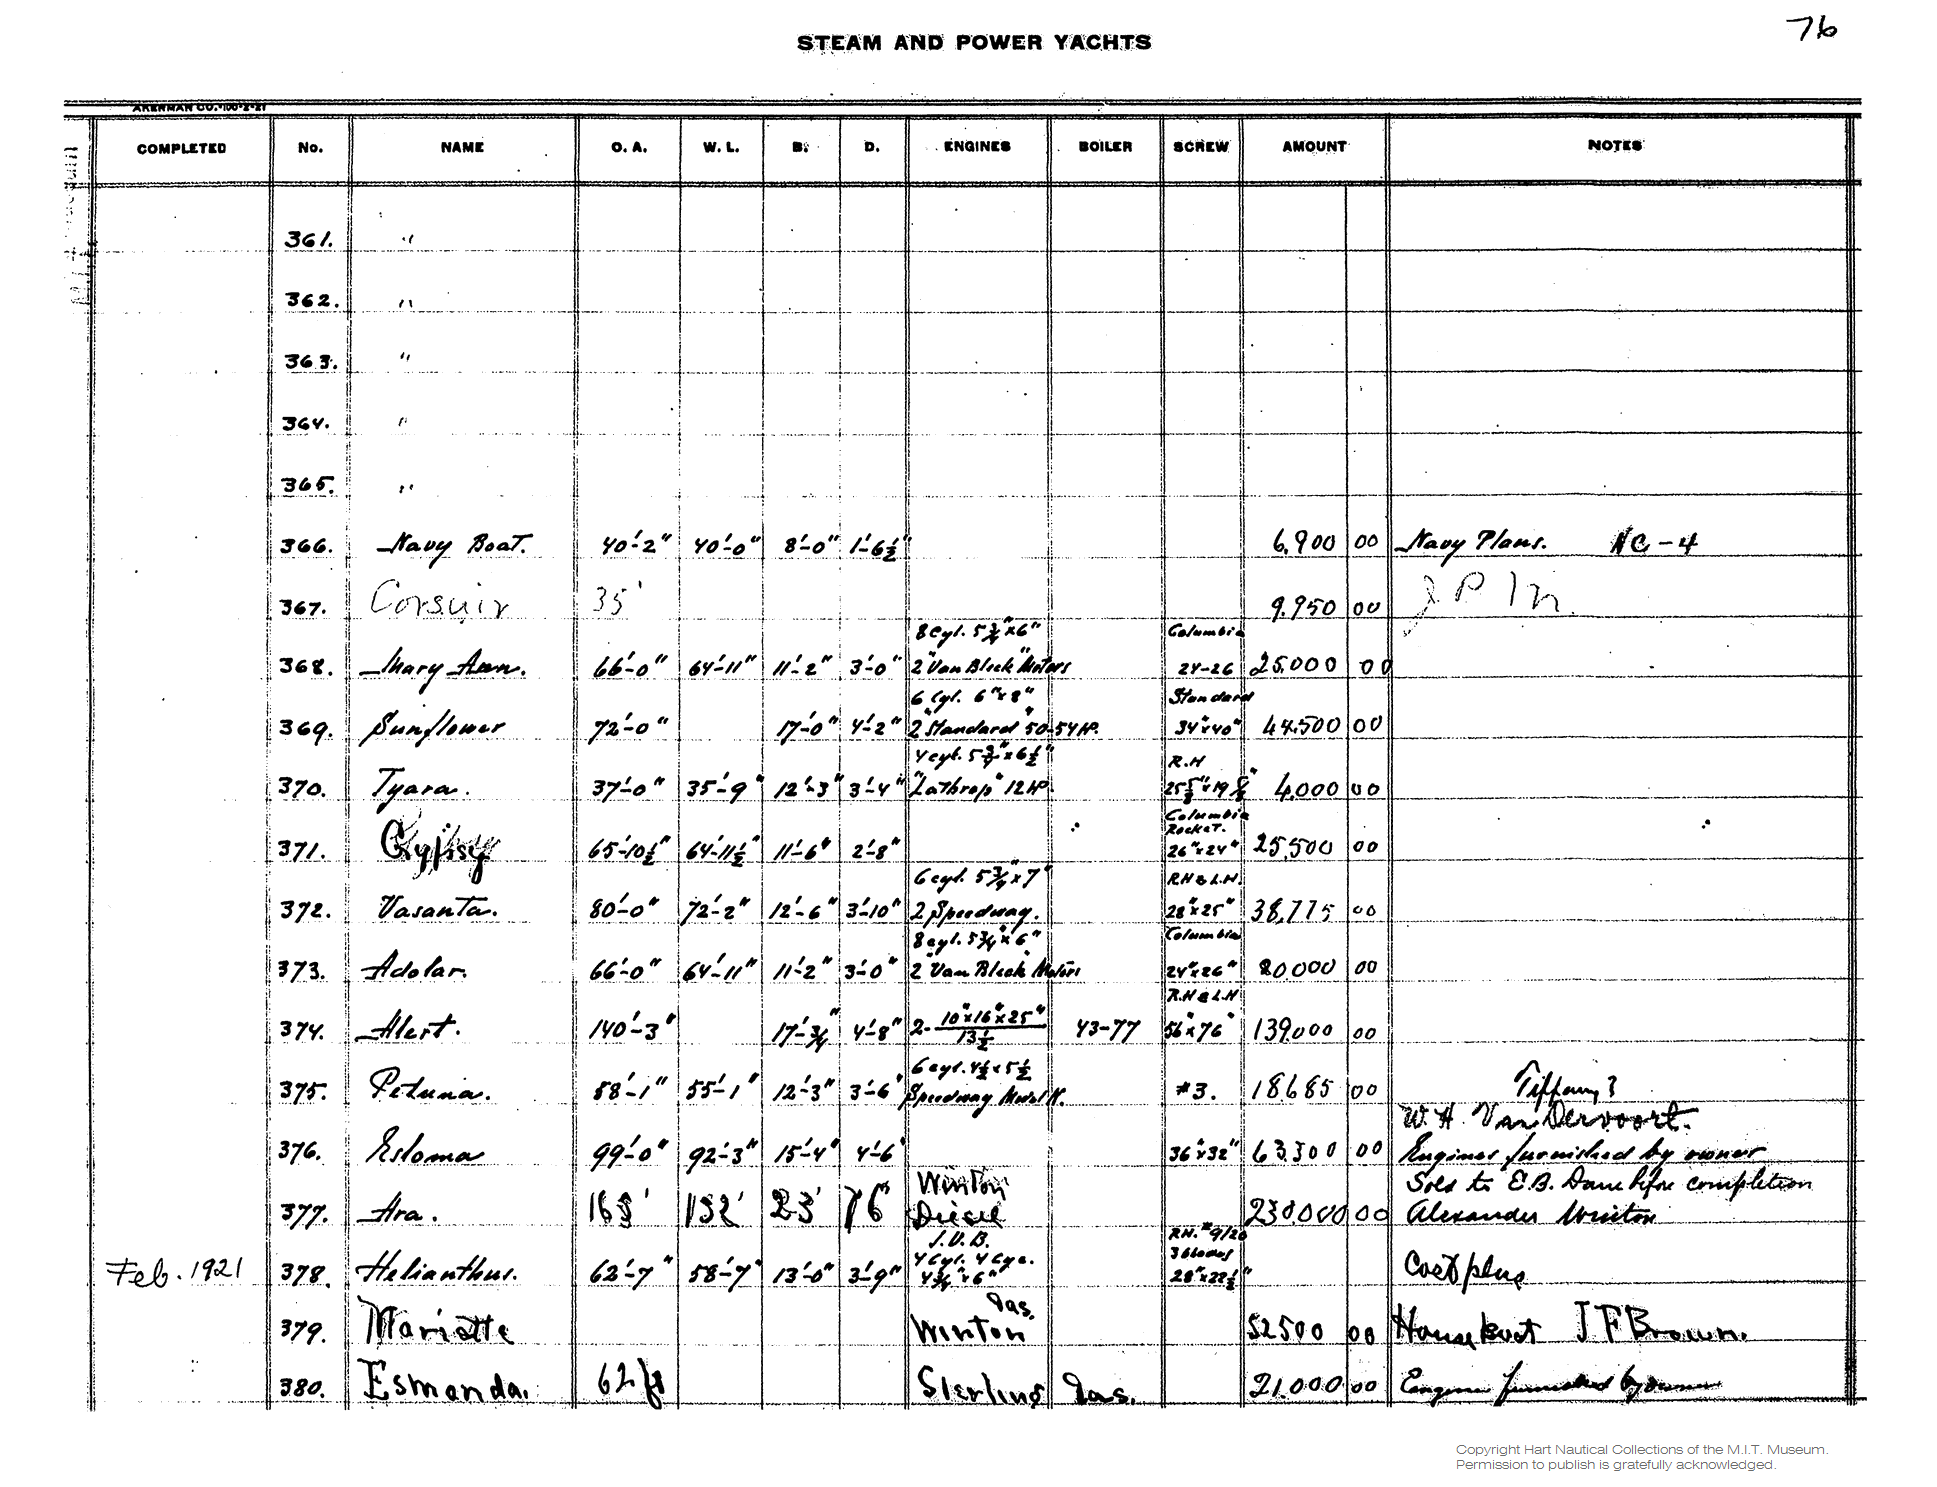 76
STEAM AND POWER YACHTS
AKERMAN CO.-100-2-21
COMPLETED No. NAME O. A. W. L. B. D. ENGINES BOILER SCREW AMOUNT NOTES
361. "
362. "
363. "
364. "
365. "
366. Navy Boat. 40'-2" 40'-0" 8'-0" 1'-6½" 6,900 00 Navy Plans. NC-4
367. Corsair 35' 9,950 00 J P M
8 Cyl. 5¾"x6" Columbia
368. Mary Ann. 66'-0" 64'-11" 11'-2" 3'-0" 2 "Van Bleck" Motors 24-26 25,000 00
6 Cyl. 6"x8" Standard
369. Sunflower 72'-0" 17'-0" 4'-2" 2 "Standard" 50-54 HP. 34"x40" 44,500 00
4 cyl. 5¾"x6½" R.H
370. Tyara. 37'-0" 35'-9" 12'-3" 3'-4" "Lathrop" 12 HP. 25⅝"x19⅝" 4,000 00
Columbia
Rocket.
371. Gypsy 65'-10½" 64'-11½" 11'-6" 2'-8" 26"x24" 25,500 00
6 cyl. 5¾"x7" RH & L.H.
372. Vasanta. 80'-0" 72'-2" 12'-6" 3'-10" 2 Speedway. 28"x25" 38,775 00
8 cyl. 5¾"x6" Columbia
373. Adolar. 66'-0" 64'-11" 11'-2" 3'-0" 2 "Van Bleck" Motors 24"x26" 20,000 00
R.H & L.H
374. Alert. 140'-3" 17'-¾" 4'-8" 2- 10"x16"x25" 43-77 56"x76" 139,000 00
13½
6 cyl. 4½x5½
375. Petunia. 58'-1" 55'-1" 12'-3" 3'-6" Speedway Model K. #3. 18,685 00 Tiffany?
W. H. Van Dervoort.
376. Esloma 99'-0" 92'-3" 15'-4" 4'-6" 36"x32" 63,300 00 Engines furnished by owner
Winton Sold to E.B. Dane before completion
377. Ara. 163' 152' 23' 76" Diesel 230,000 00 Alexander Winton
J.V.B. RH. #9/20
4 Cyl. 4 Cyc. 3 blades
Feb. 1921 378. Helianthus. 62'-7" 58'-7" 13'-0" 3'-9" 4¾"x6" 28"x22½" Cost plus
Gas.
379. Mariette Winton 52500 00 House boat J F Brown.
380. Esmonda. 62 ft Sterling Gas. 21,000 00 Engine furnished by owner
Copyright Hart Nautical Collections of the M.I.T. Museum.
Permission to publish is gratefully acknowledged.